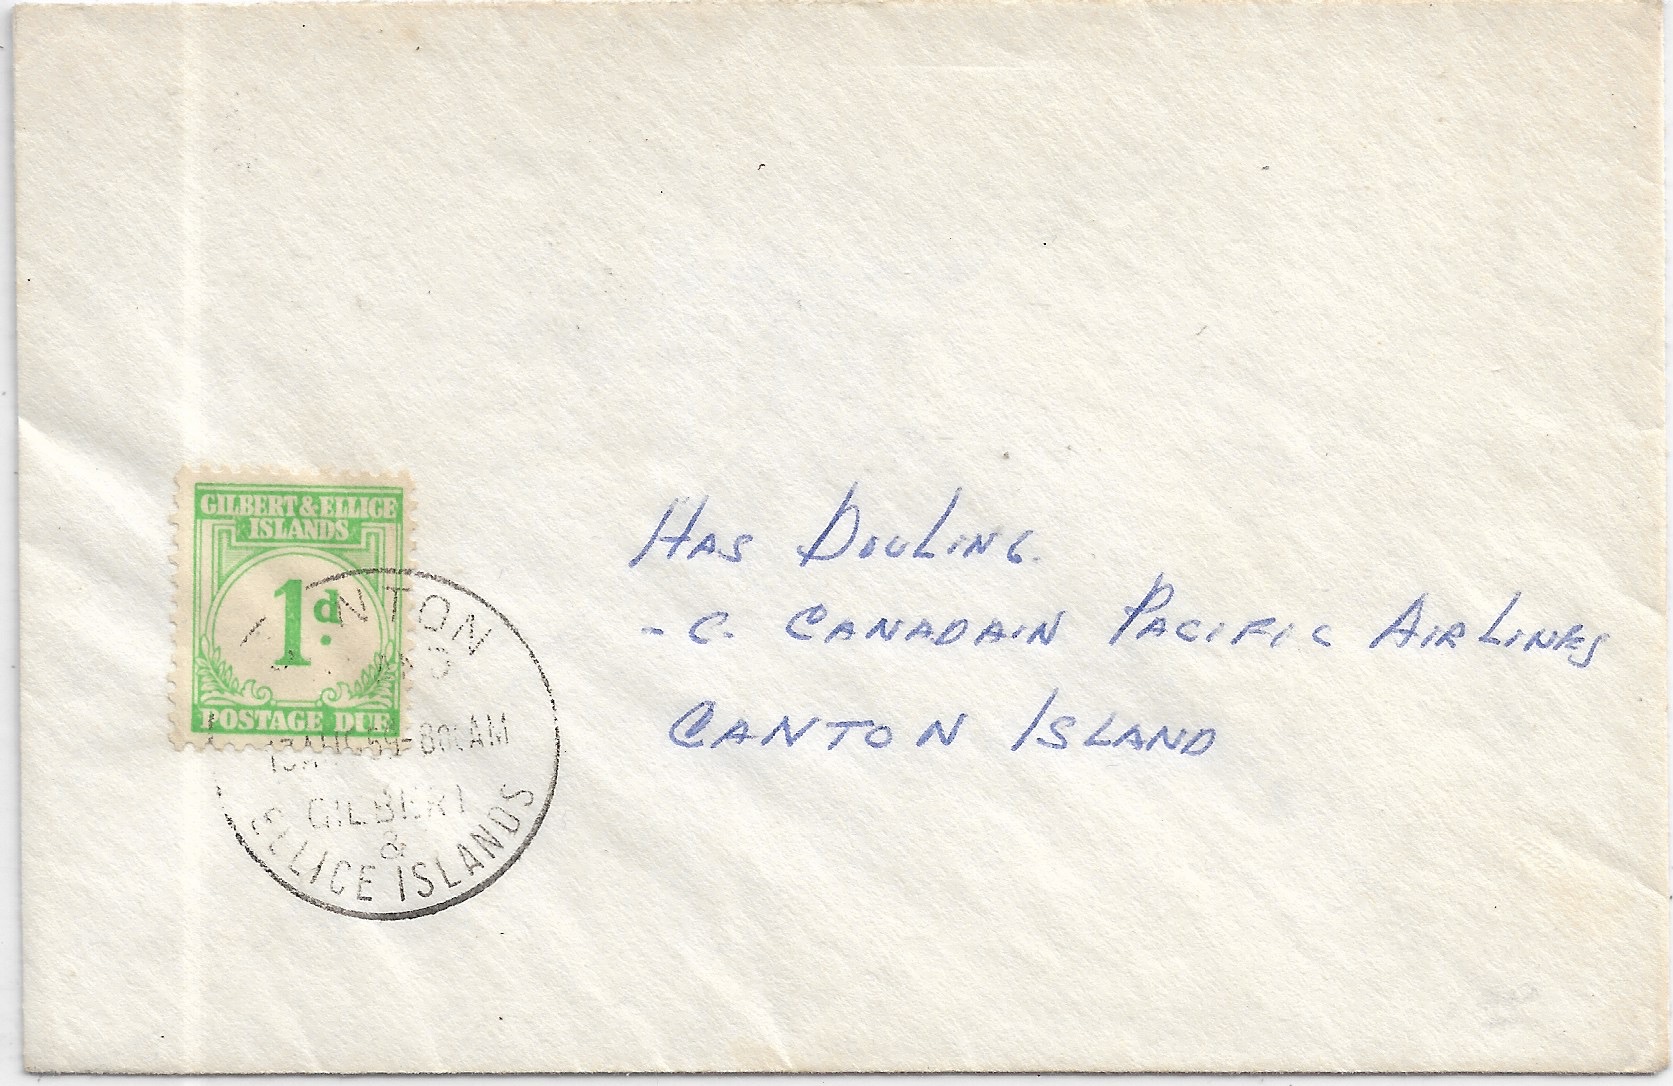 GILBERT & ELLICE
ISLANDS
1d.
POSTAGE DUE
NTON
13 AUG 59-800AM
GILBERT
&
ELLICE ISLANDS
HAS DOULING.
-C. CANADAIN PACIFIC AIRLINES
CANTON ISLAND